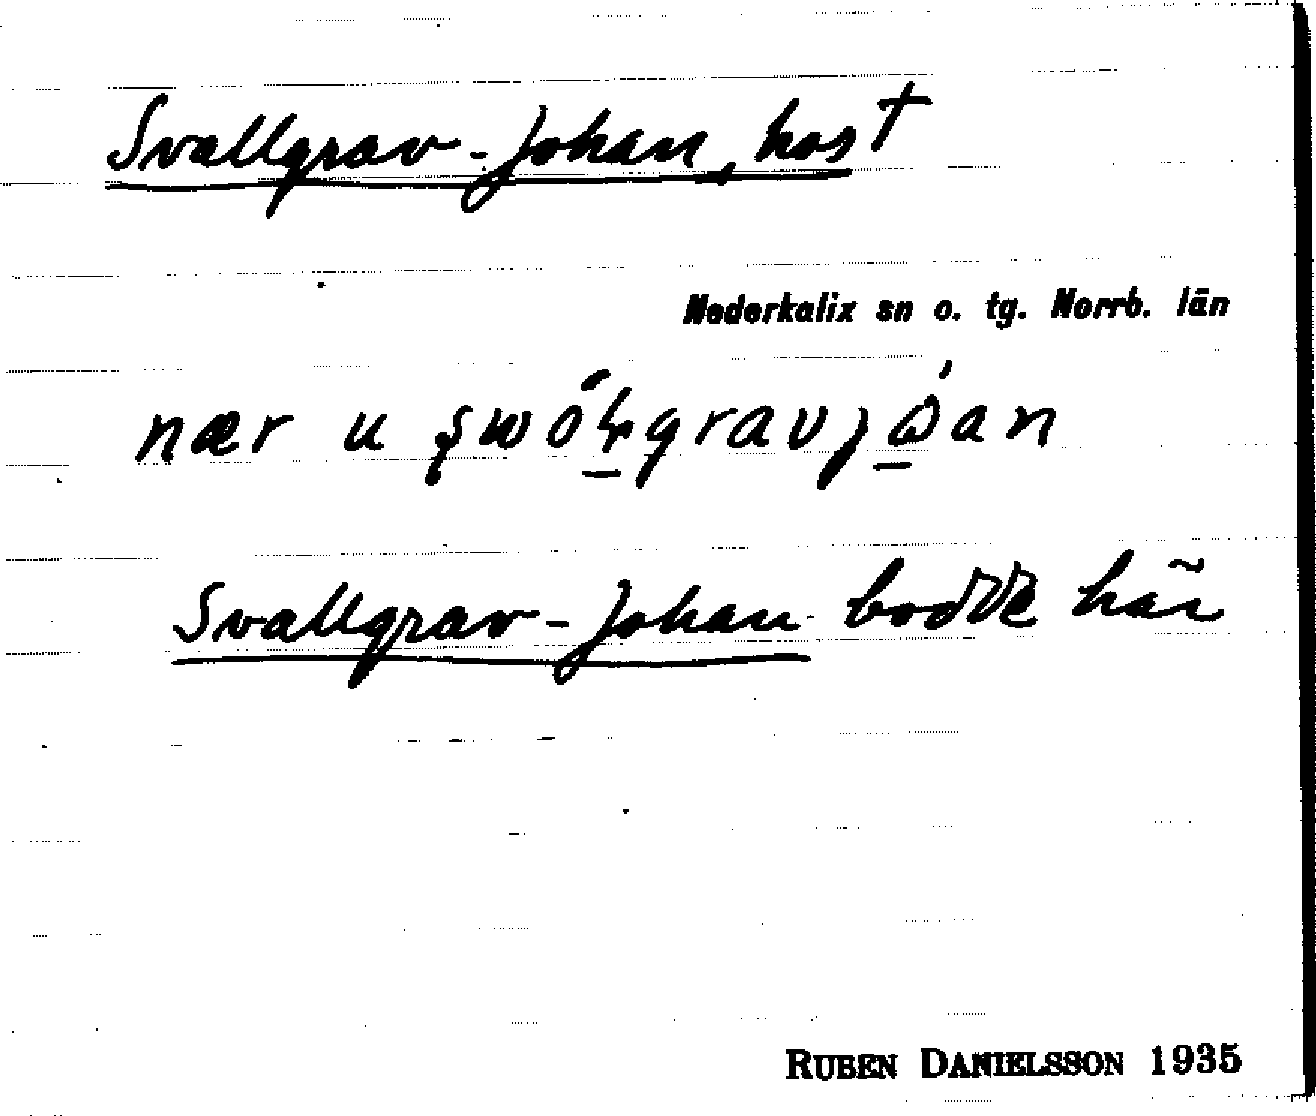 Svallgrav-Johan, hos †
Nederkalix sn o. tg. Norrb. län
nær u
Svallgrav-Johan bodde här
RUBEN DANIELSSON 1935